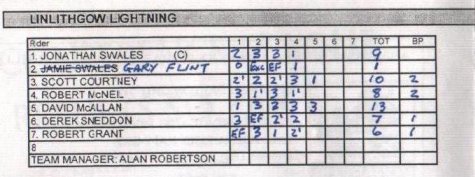 LINLITHGOW LIGHTNING
Rider 1 2 3 4 5 6 7 TOT BP
1. JONATHAN SWALES (C) 2 3 3 1 9
2. JAMIE SWALES GARY FLINT 0 Exc EF 1 1
3. SCOTT COURTNEY 2' 2 2' 3 1 10 2
4. ROBERT McNEIL 3 1' 3 1' 8 2
5. DAVID McALLAN 1 3 3 3 3 13
6. DEREK SNEDDON 3 EF 2' 2 7 1
7. ROBERT GRANT EF 3 1 2' 6 1
8
TEAM MANAGER: ALAN ROBERTSON